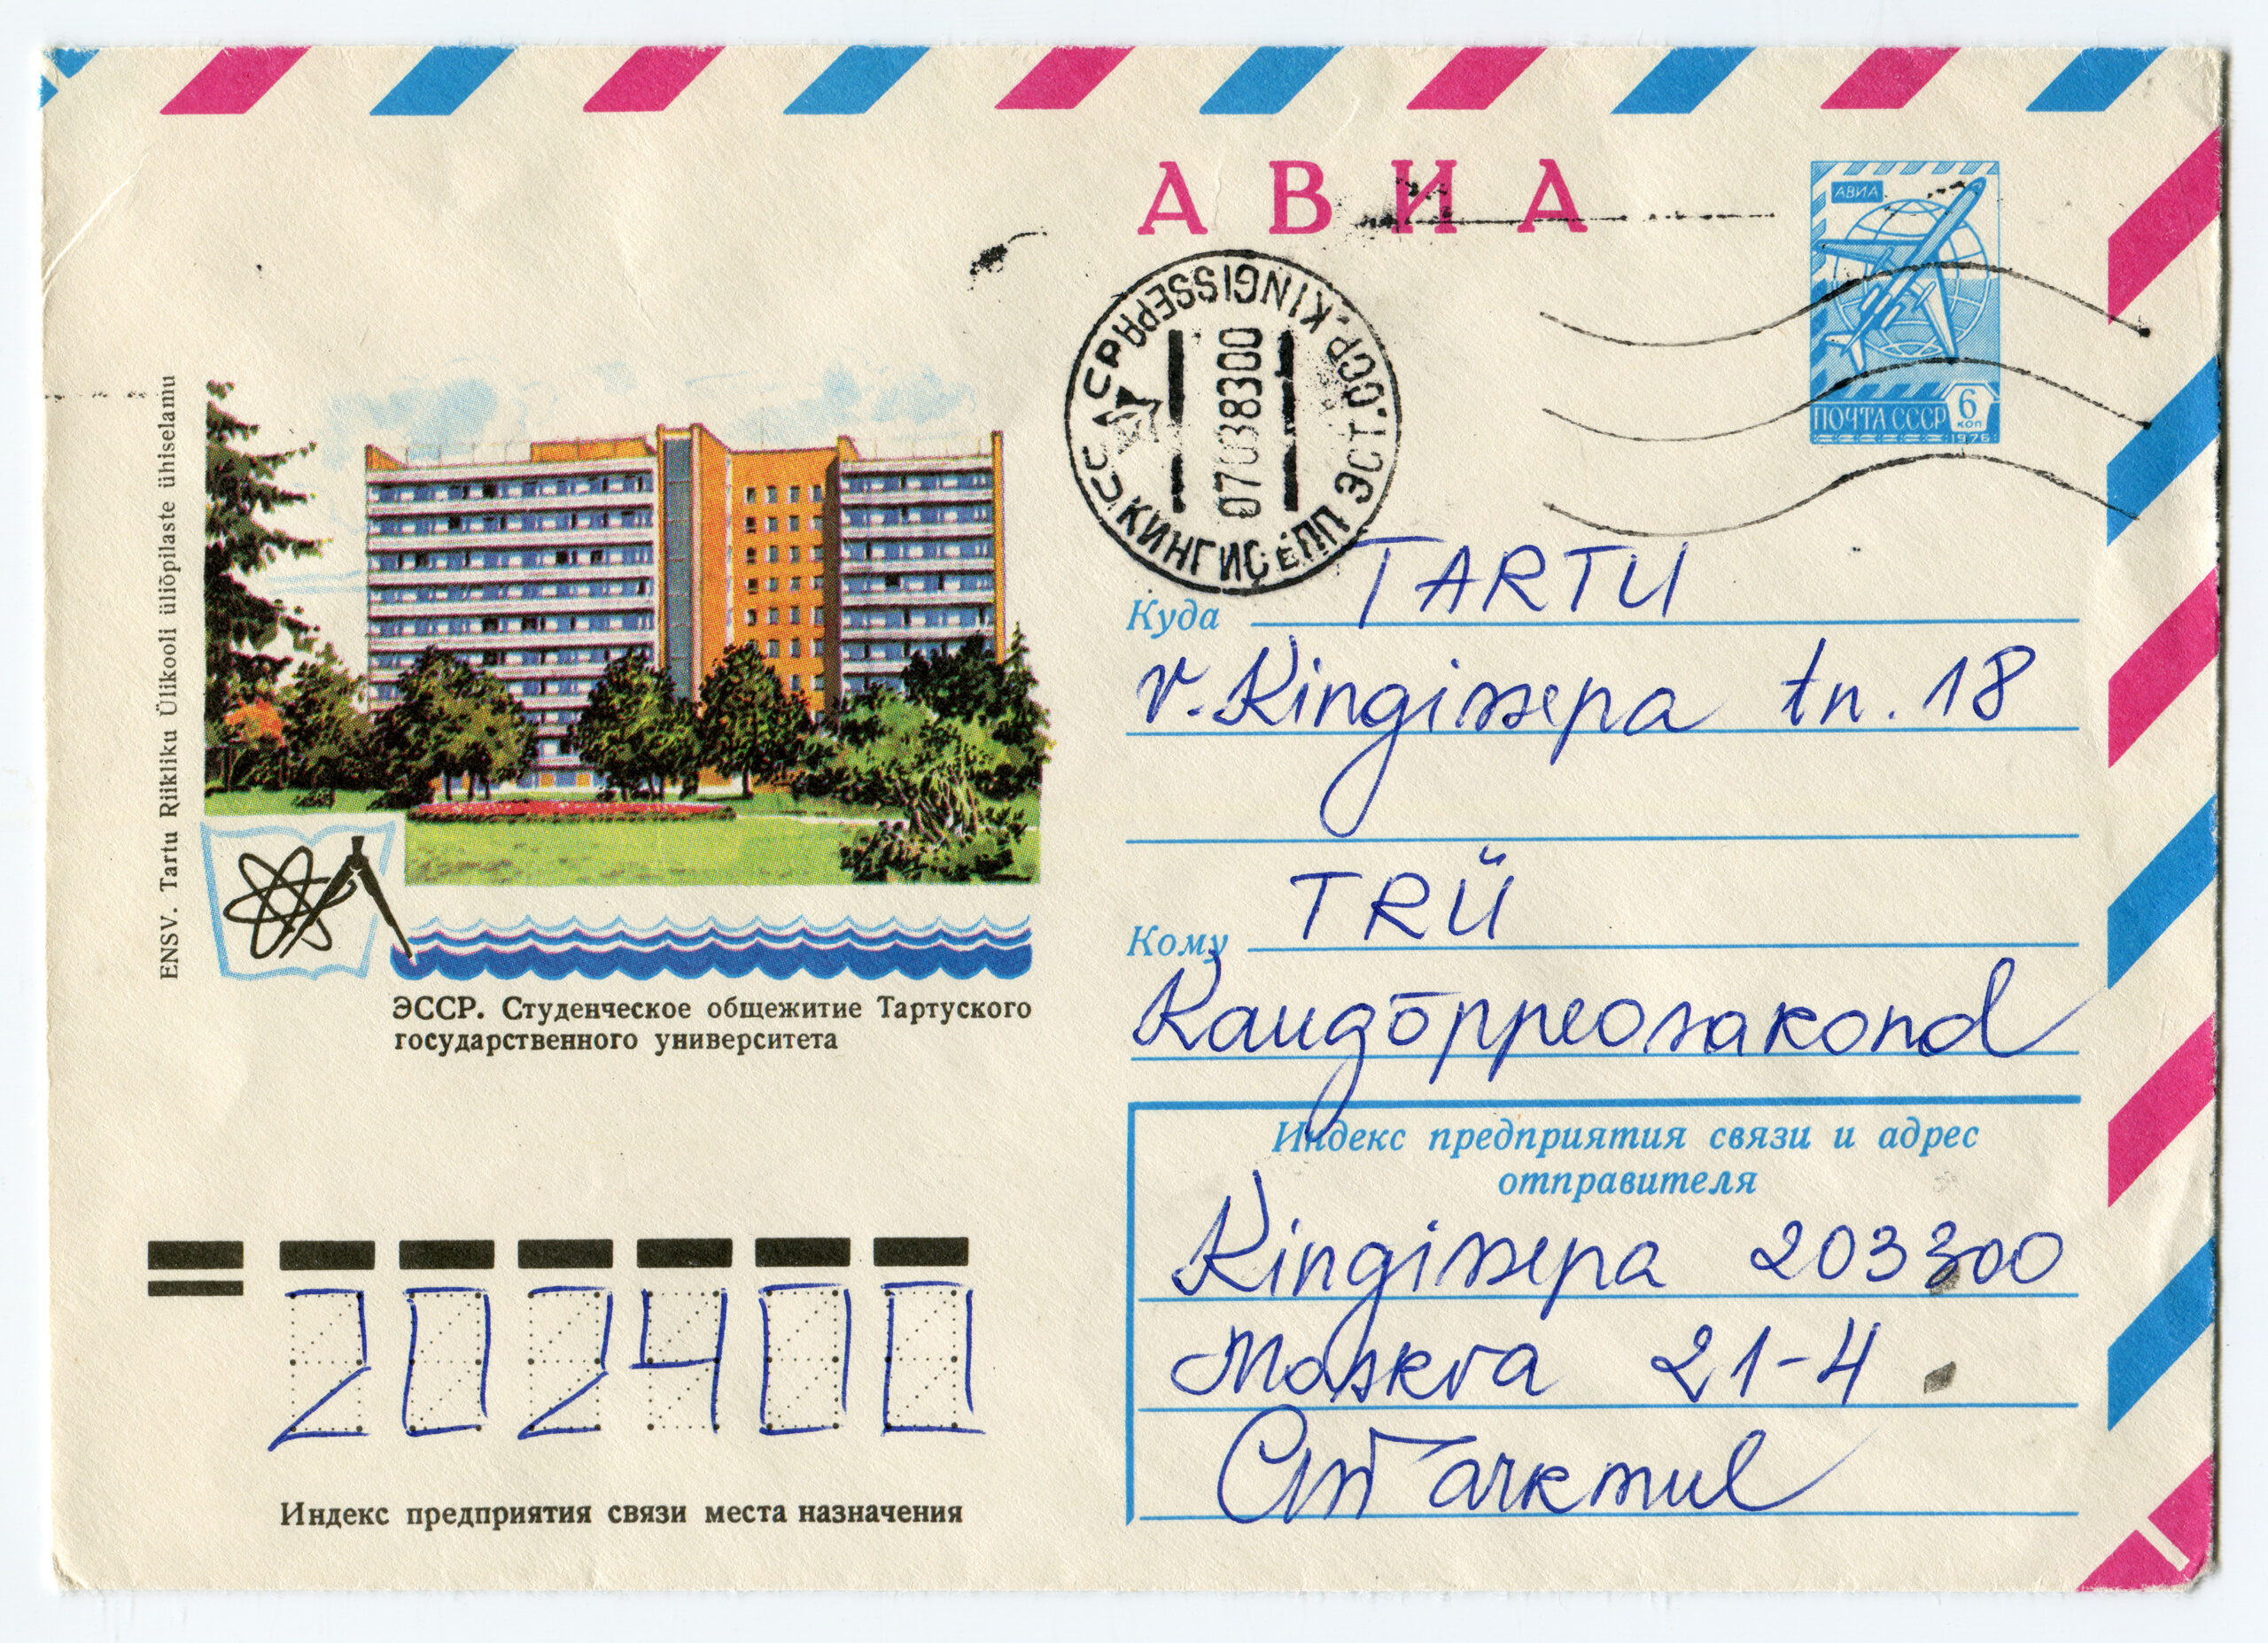 АВИА
АВИА
ПОЧТА СССР 6 КОП
1976
СССР KINGISSEPA
КИНГИСЕПП ЭСТ.ССР.
07038300
Куда TARTU
v. Kingissepa tn. 18
Кому TRÜ
Kaugõppeosakond
Индекс предприятия связи и адрес
отправителя
Kingissepa 203300
Moskva 21-4
ENSV. Tartu Riikliku Ülikooli üliõpilaste ühiselamu
ЭССР. Студенческое общежитие Тартуского
государственного университета
202400
Индекс предприятия связи места назначения